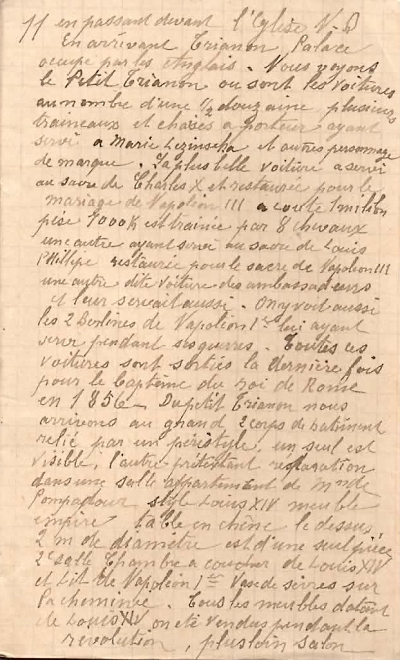 11 en passant devant l'Eglise N. D
En arrivant Trianon Palace
occupé par les Anglais. Nous voyons
le Petit Trianon ou sont les voitures
au nombre d'une ½ douzaine plusieurs
traineaux et chaises a porteur ayant
servi a Marie Leczinska et autres personnage
de marque. La plus belle voiture a servi
au sacre de Charles X et restaurée pour le
mariage de Napoléon III a couté 1 million
pèse 7000 K est trainée par 8 chevaux
une autre ayant servi au sacre de Louis
Philippe restaurée pour le sacre de Napoléon III
une autre dite voiture des ambassadeurs
et leur servait aussi. On y voit aussi
les 2 Berlines de Napoléon 1er lui ayant
servi pendant ses guerres. Toutes ces
voitures sont sorties la dernière fois
pour le baptême du roi de Rome
en 1856. Du petit Trianon nous
arrivons au grand 2 corps de batiment
relié par un péristyle, un seul est
visible, l'autre prétextant réparation
dans une salle appartement de Mme de
Pompadour style Louis XIV meuble
empire table en chêne le dessus
2 m de diamètre est d'une seul pièce
2e salle Chambre a coucher de Louis XIV
et Lit de Napoléon 1er Vase de sèvres sur
la cheminée. Tous les meubles datant
de Louis XIV on été vendus pendant la
révolution, plus loin salon